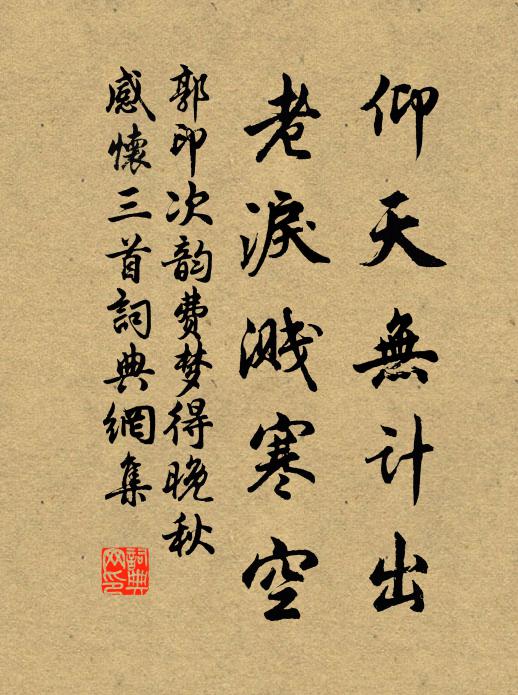 仰天無计出
老淚溅寒空
郭印次韵費梦得晚秋
感懷三首詞典網集
詞典网印